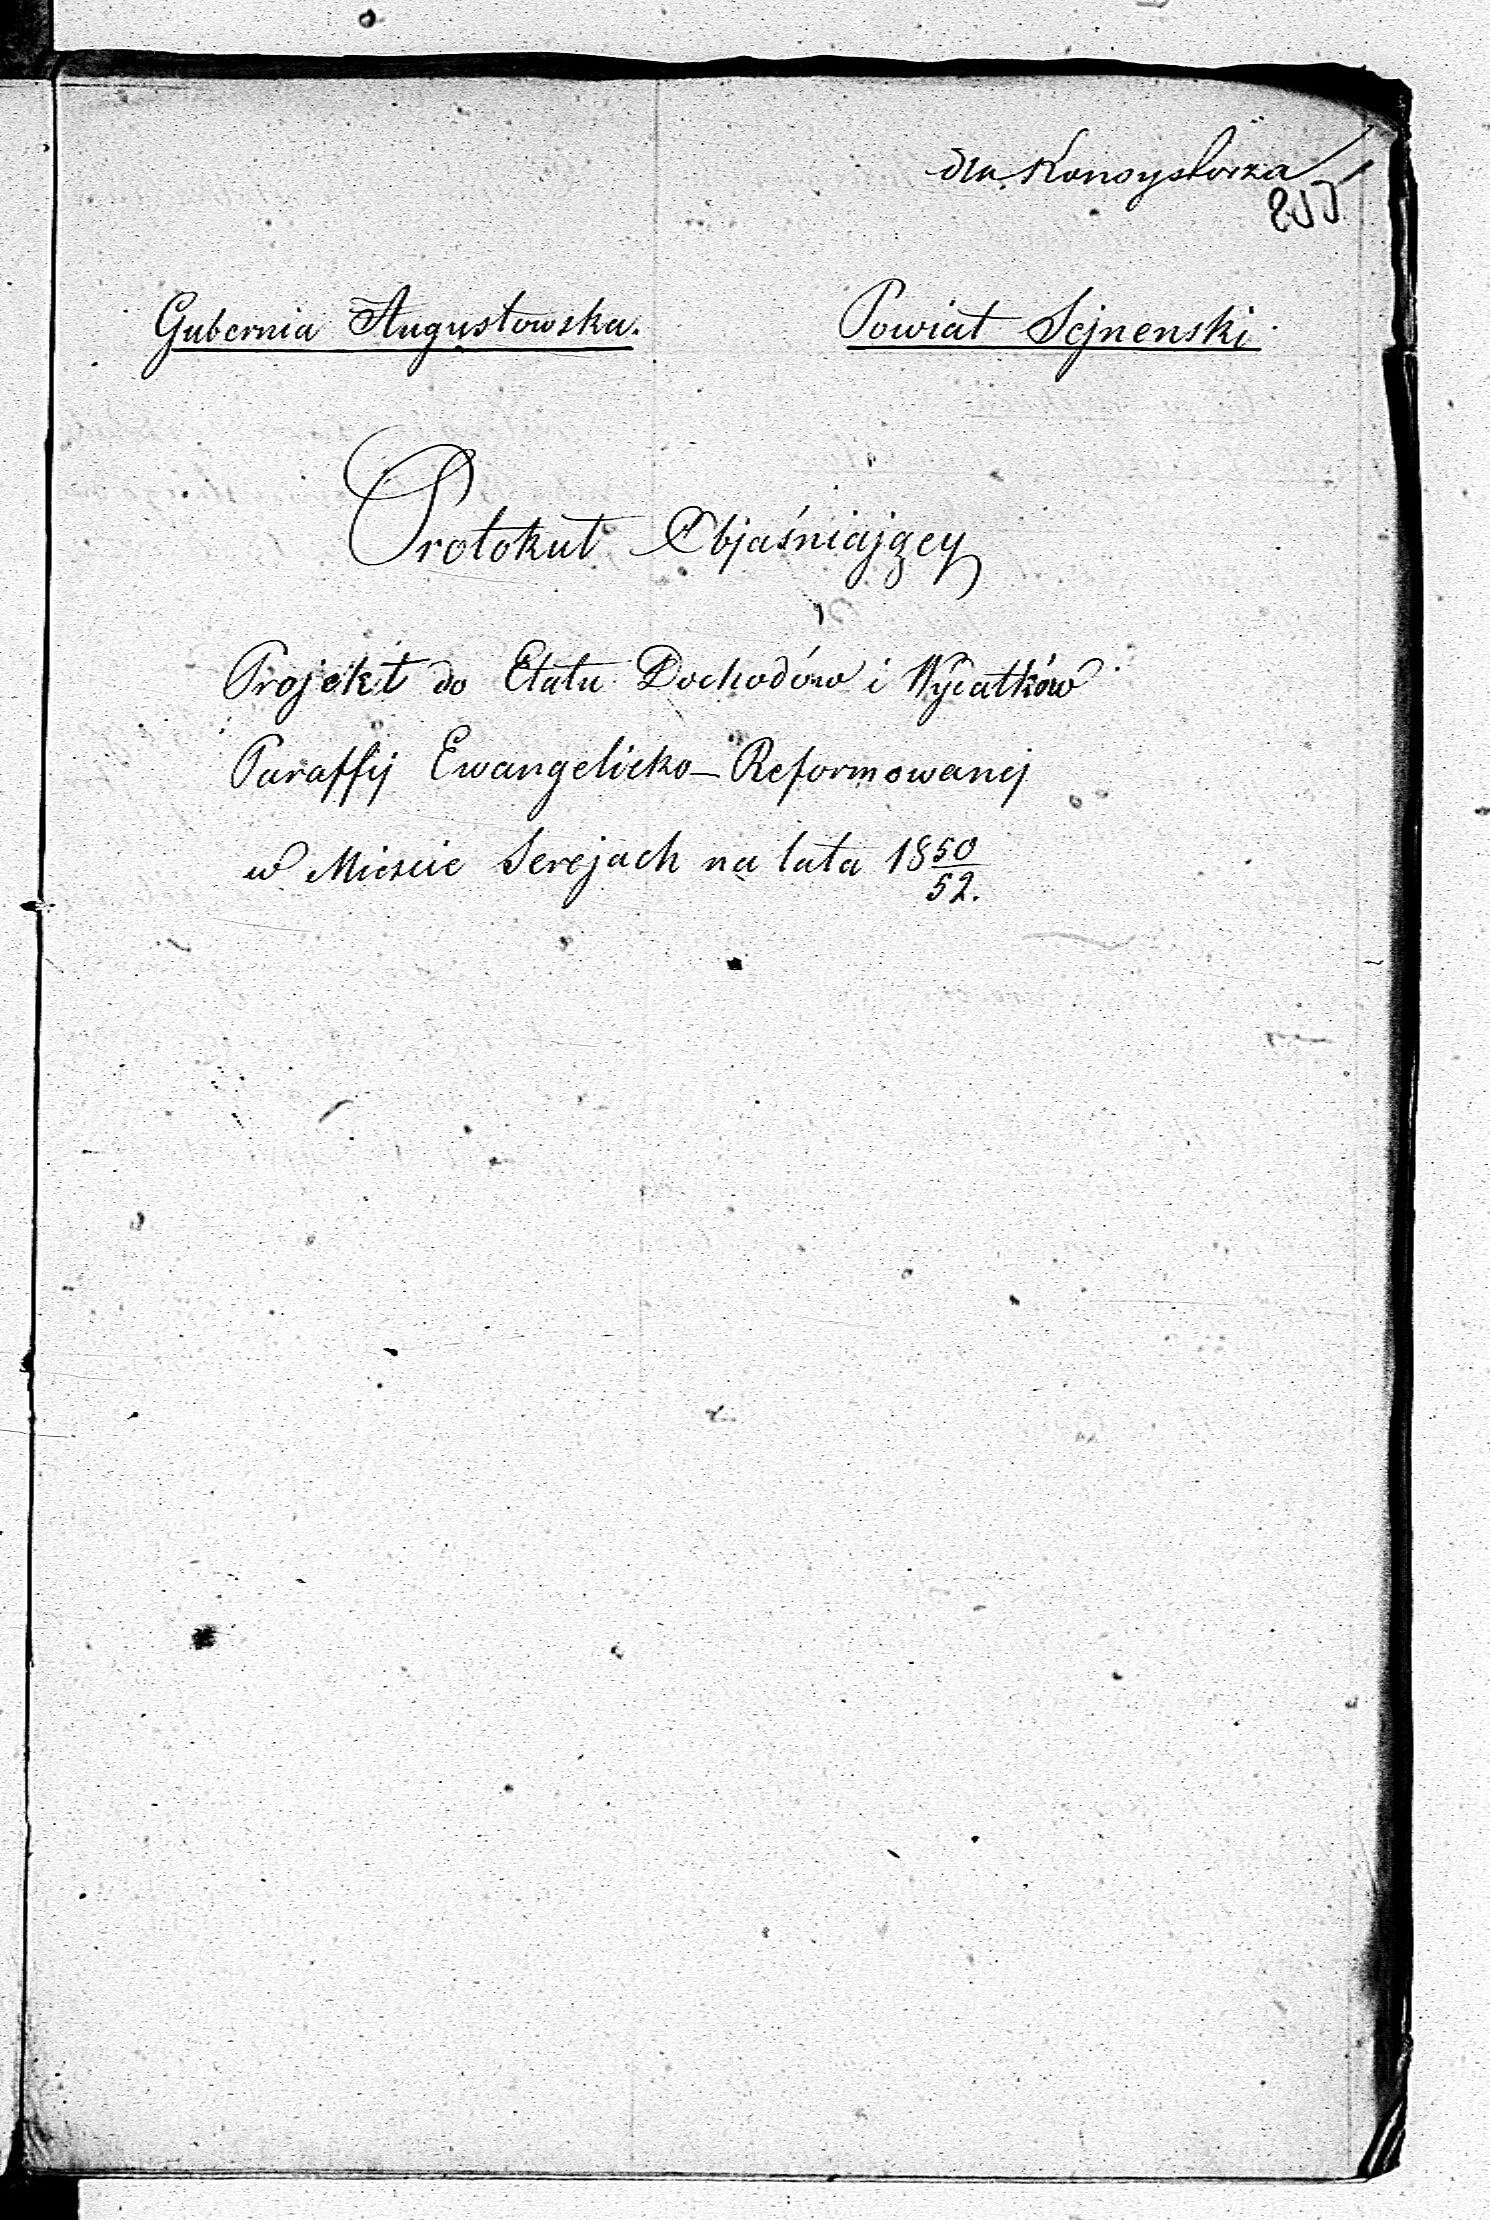 dla Konsystorza
255
Gubernia Augustowska. Powiat Sejnenski
Protokuł Objaśniający
Projekt do Etatu Dochodów i Wydatków
Paraffij Ewangelicko-Reformowanej
w Mieście Serejach na lata 1850/52.